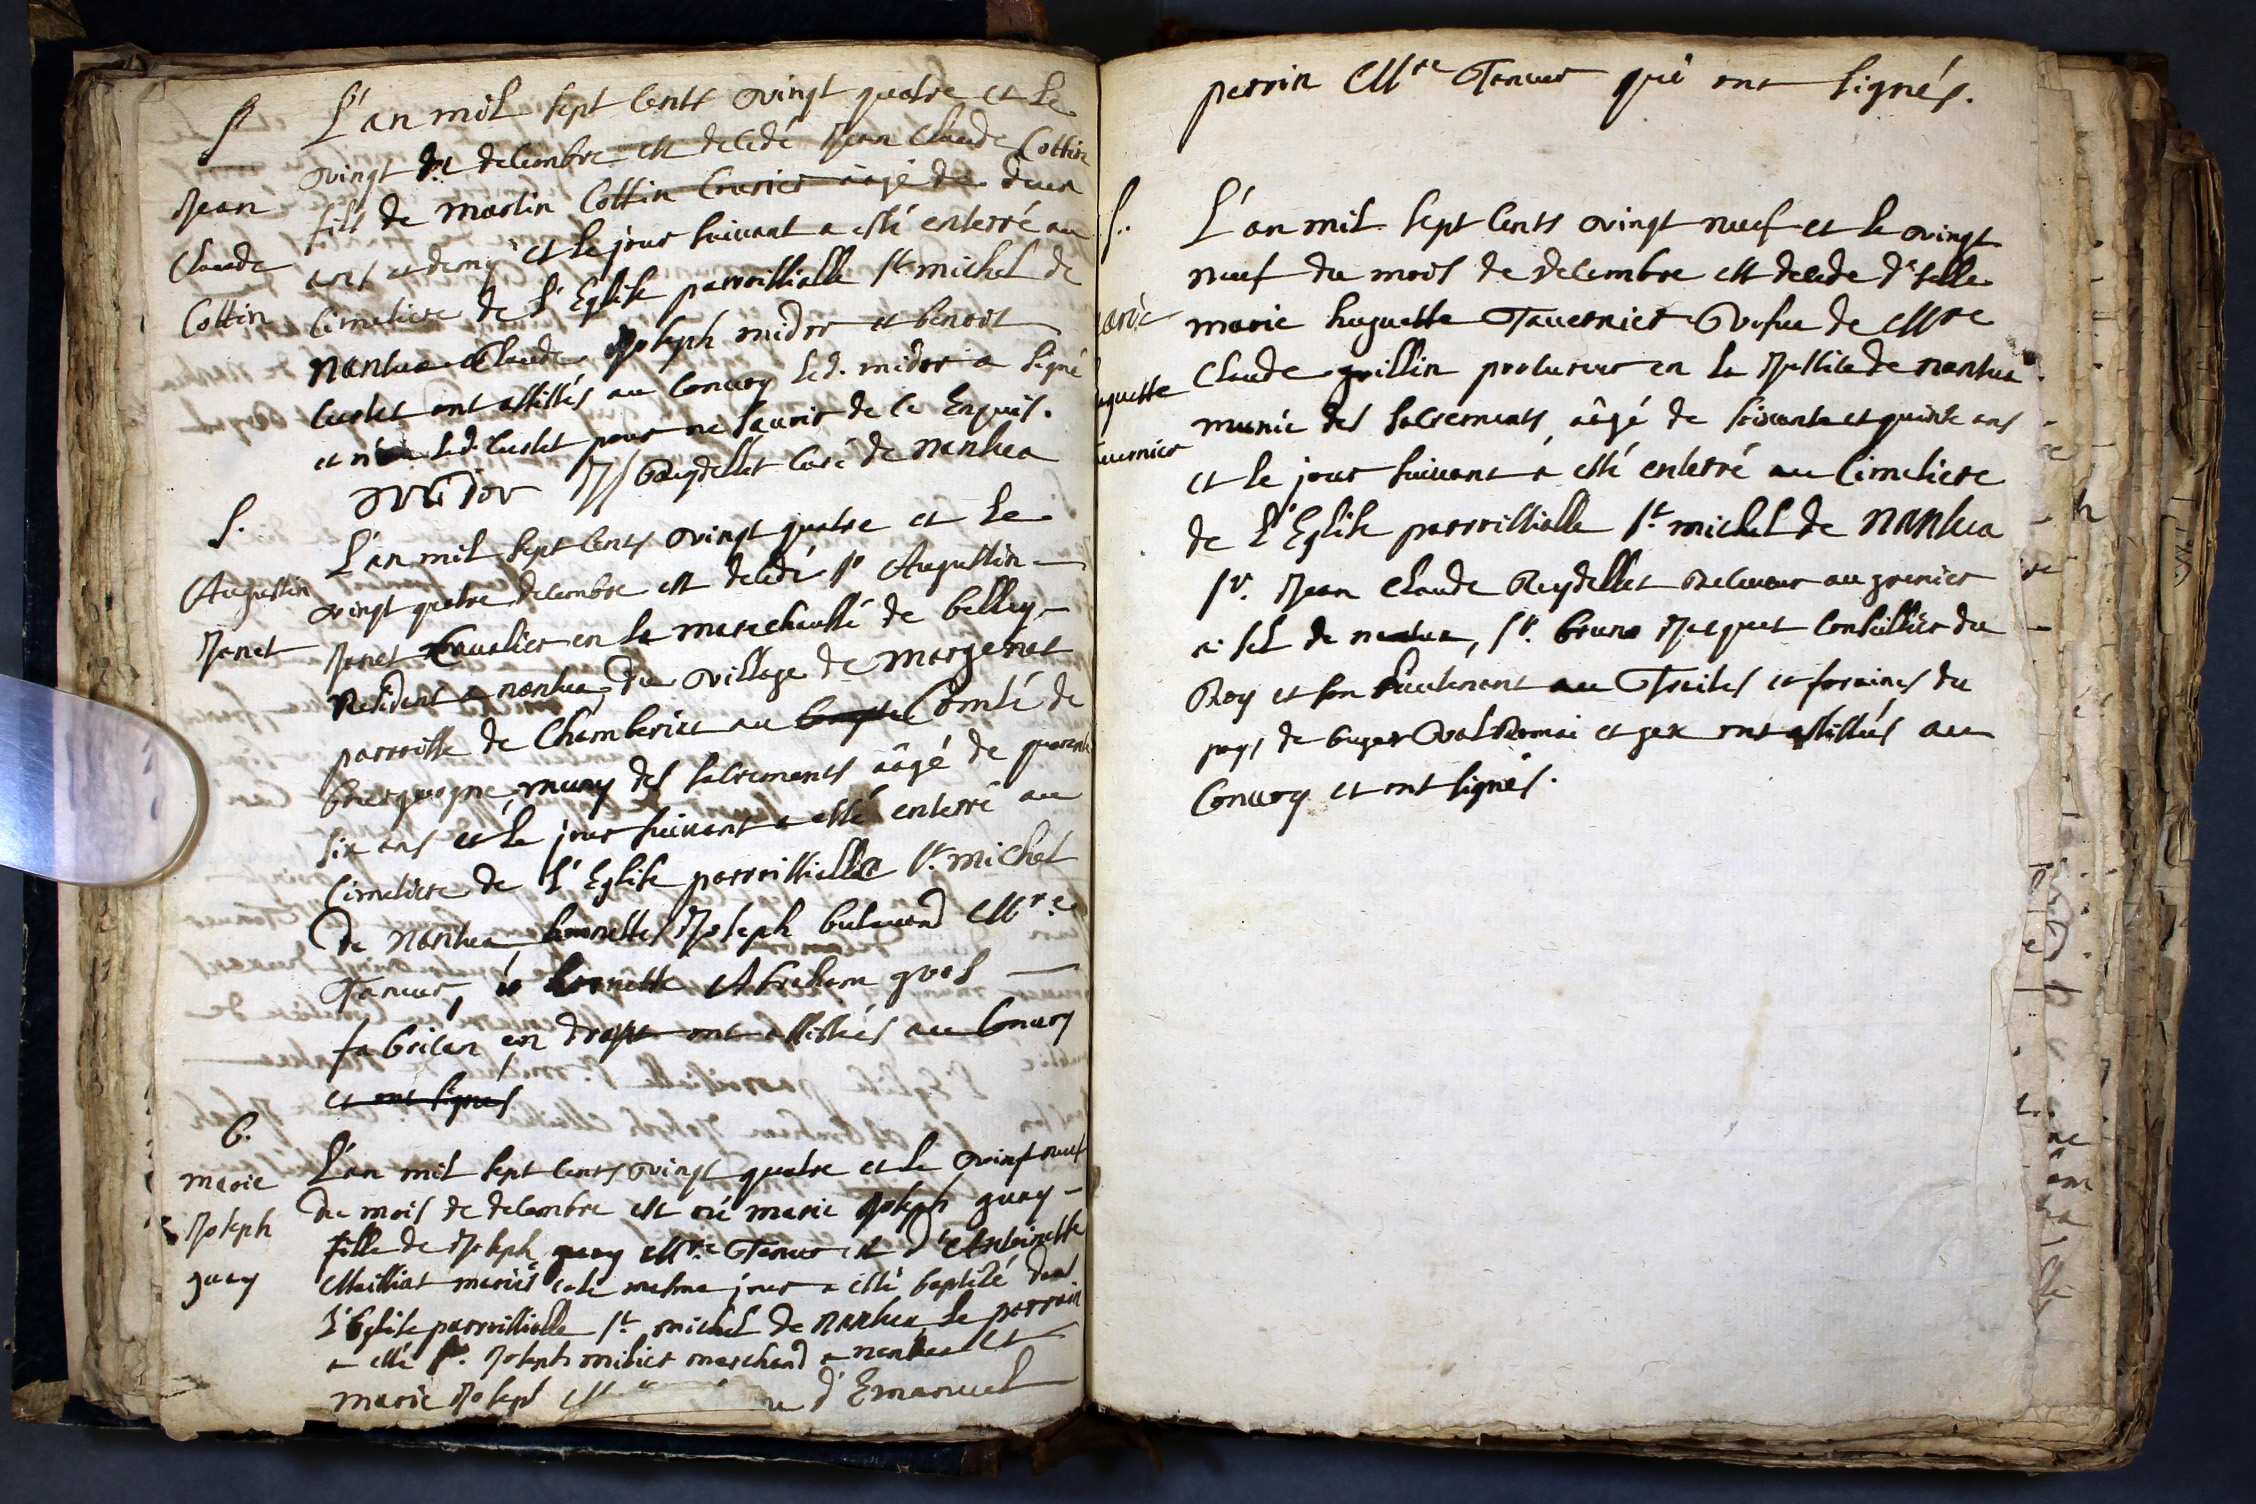 S
Jean
Claude
Cottin
L'an mil sept cents vingt quatre et le
vingt de decembre est decedé Jean Claude Cottin
fils de martin Cottin aâgé de deux
ans et demy et le jour suivant a esté enterré au
Cimetiere de L'Eglise parroissialle St michel de
nantua Claude Joseph midor et benoit
ont assistés au Convoy led. midor a signé
et led. pour ne sçavoir de ce Enquis.
midor Reydellet curé de nantua
S.
Augustin
Janet
L'an mil sept cents vingt quatre et le
vingt quatre decembre est decedé Sr Augustin
Janet Cavalier en la marechaussé de belley
Resident a nantua, du village de margenat
parroisse de Chamberia au Comté de
bourgougne muny des sacrements aâgé de quarente
six ans et le jour suivant a esté enterré au
Cimetiere de L'Eglise parroissialle St. michel
de nantua honnettes Joseph Mre
Tanneur, honnette Abraham
fabrican en draps ont assistés au Convoy
et ont signés
B.
marie
Joseph
guay
L'an mil sept cents vingt quatre et le vingt neuf
du mois de decembre est né marie Joseph guay
fille de Joseph guay Mre Taneur et d'Antoinette
Mailliat mariés et le mesme jour a esté baptisé dans
L'Eglise parroissialle St. michel de nantua Le parrain
a esté Sr. Joseph marchand a nantua et
marie Joseph d'Emanuel
perrin Mre Taneur qui ont signés.
S.
marie
huguette
Tavernier
L'an mil sept cents vingt neuf et le vingt
neuf du mois de decembre est decede dlle
marie huguette Tavernier vefue de Mre
Claude grillin procureur en la Justice de nantua
munie des sacrements, aâgé de soixante et quinze ans
et le jour suivant a esté enterré au Cimetiere
de L'Eglise parroissialle St. michel de nantua
Sr. Jean Claude Reydellet Receveur au grenier
a sel de nantua, Sr. bruno Jacquet Conseillier du
Roy et son Lieutenant au Traites et foraines du
pays de bugey Valromai et gex ont assistés au
Convoy et ont signés.